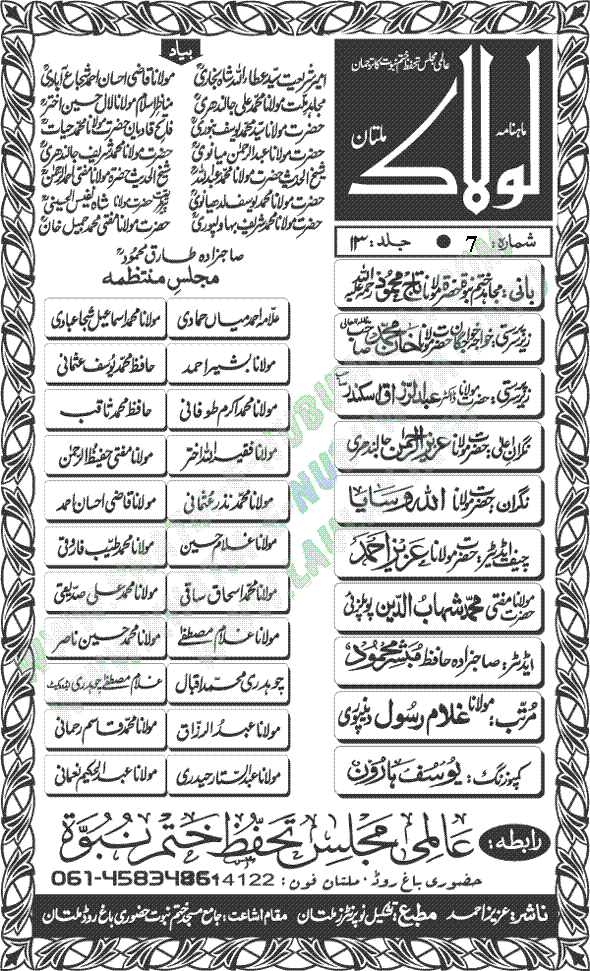 عالمی مجلس تحفظ ختم نبوت کا ترجمان
ماہنامہ
لولاک
ملتان
شمارہ: 7 ● جلد: ۱۳
بانی: مجاہد ختم نبوۃ حضرۃ مولانا تاج محمود رحمۃ اللہ علیہ
زیر سرپرستی: خواجہ خواجگان حضرت مولانا خان محمد صاحب
زیر سرپرستی: حضرت مولانا ڈاکٹر عبدالرزاق اسکندر
نگران اعلیٰ: حضرت مولانا عزیز الرحمٰن جالندھری
نگران: حضرت مولانا اللہ وسایا
چیف ایڈیٹر: حضرت مولانا عزیز احمد
حضرت مولانا مفتی محمد شہاب الدین پوپلزئی
ایڈیٹر: صاحبزادہ حافظ مبشر محمود
مرتب: مولانا غلام رسول دینپوری
کمپوزنگ: یوسف ہارون
بیاد
امیر شریعت سید عطاء اللہ شاہ بخاری
مولانا قاضی احسان احمد شجاع آبادی
مجاہد ملت مولانا محمد علی جالندھری
مناظر اسلام مولانا لال حسین اختر
حضرت مولانا سید محمد یوسف بنوری
فاتح قادیان حضرت مولانا محمد حیات
حضرت مولانا عبدالرحمٰن میانوی
حضرت مولانا محمد شریف جالندھری
شیخ الحدیث حضرت مولانا محمد عبداللہ
شیخ الحدیث حضرۃ مولانا مفتی احمد الرحمٰن
حضرت مولانا محمد یوسف لدھیانوی
حضرت مولانا شاہ نفیس الحسینی
حضرت مولانا محمد شریف بہاولپوری
حضرت مولانا مفتی محمد جمیل خان
صاحبزادہ طارق محمود
مجلس منتظمہ
علامہ احمد میاں حمادی
مولانا محمد اسماعیل شجاعبادی
مولانا بشیر احمد
حافظ محمد یوسف عثمانی
مولانا محمد اکرم طوفانی
حافظ محمد ثاقب
مولانا فقیر اللہ اختر
مولانا مفتی حفیظ الرحمٰن
مولانا محمد نذر عثمانی
مولانا قاضی احسان احمد
مولانا غلام حسین
مولانا محمد طیب فاروقی
مولانا محمد اسحاق ساقی
مولانا محمد علی صدیقی
مولانا غلام مصطفےٰ
مولانا محمد حسین ناصر
چوہدری محمد اقبال
غلام مصطفےٰ چوہدری ایڈووکیٹ
مولانا عبدالرزاق
مولانا محمد قاسم رحمانی
مولانا عبدالستار حیدری
مولانا عبدالحکیم نعمانی
رابطہ: عالمی مجلس تحفظ ختم نبوۃ
حضوری باغ روڈ، ملتان فون: 061-4583486
ناشر: عزیز احمد مطبع: تشکیل نو پرنٹرز ملتان مقام اشاعت: جامع مسجد ختم نبوت حضوری باغ روڈ ملتان